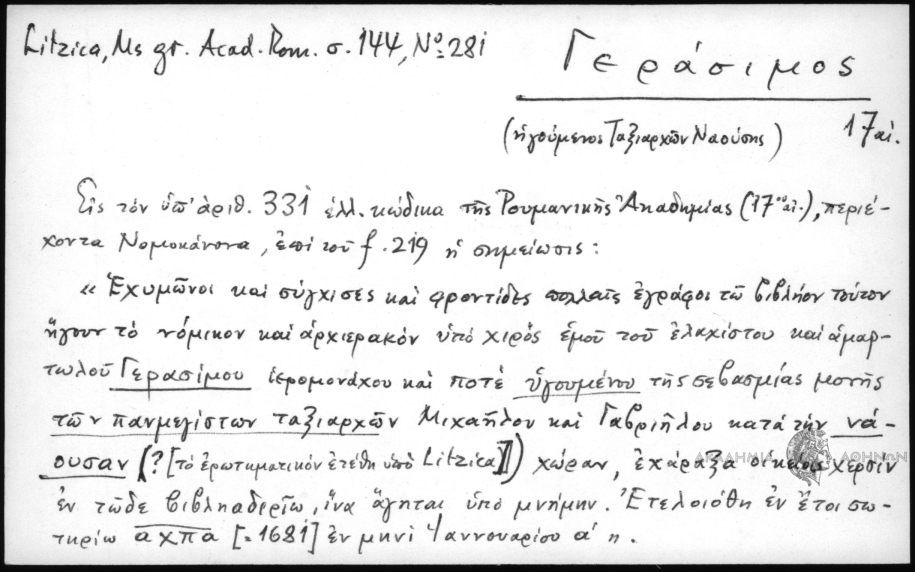 Litzica, Ms gr. Acad. Rom. σ. 144, Nο 281
Γεράσιμος
(ἡγούμενος Ταξιαρχῶν Ναούσης) 17 αἰ.
Εἰς τὸν ὑπ' ἀριθ. 331 ἑλλ. κώδικα τῆς Ρουμανικῆς Ἀκαδημίας (17ου αἰ.), περιέ-
χοντα Νομοκάνονα, ἐπὶ τοῦ f. 219 ἡ σημείωσις:
« Ἐχυμῶνοι καὶ σύγχισες καὶ φροντίδες πολλαῖς ἐγράφοι τῶ βιβλήον τούτον
ἤγουν τὸ νόμικον καὶ ἀρχιερακόν ὑπὸ χιρὸς ἐμοῦ τοῦ ἐλαχίστου καὶ ἁμαρ-
τωλοῦ Γερασίμου ἱερομονάχου καὶ ποτὲ ὑγουμένου τῆς σεβασμίας μονῆς
τῶν πανμεγίστων ταξιαρχῶν Μιχαήλου καὶ Γαβριήλου κατὰ τὴν νά-
ουσαν (? [τὸ ἐρωτηματικὸν ἐτέθη ὑπὸ Litzica]) χώραν, ἐχάραξα οἰκείαις χερσὶν
ἐν τῶδε βιβληαδερίω, ἵνα ἄγηται ὑπὸ μνήμην. Ἐτελοιόθη ἐν ἔτοι σω-
τηρίω αχπα [= 1681] ἐν μηνὶ Ἰαννουαρίσυ α΄ η.
ΑΚΑΔΗΜΙΑ ΑΘΗΝΩΝ